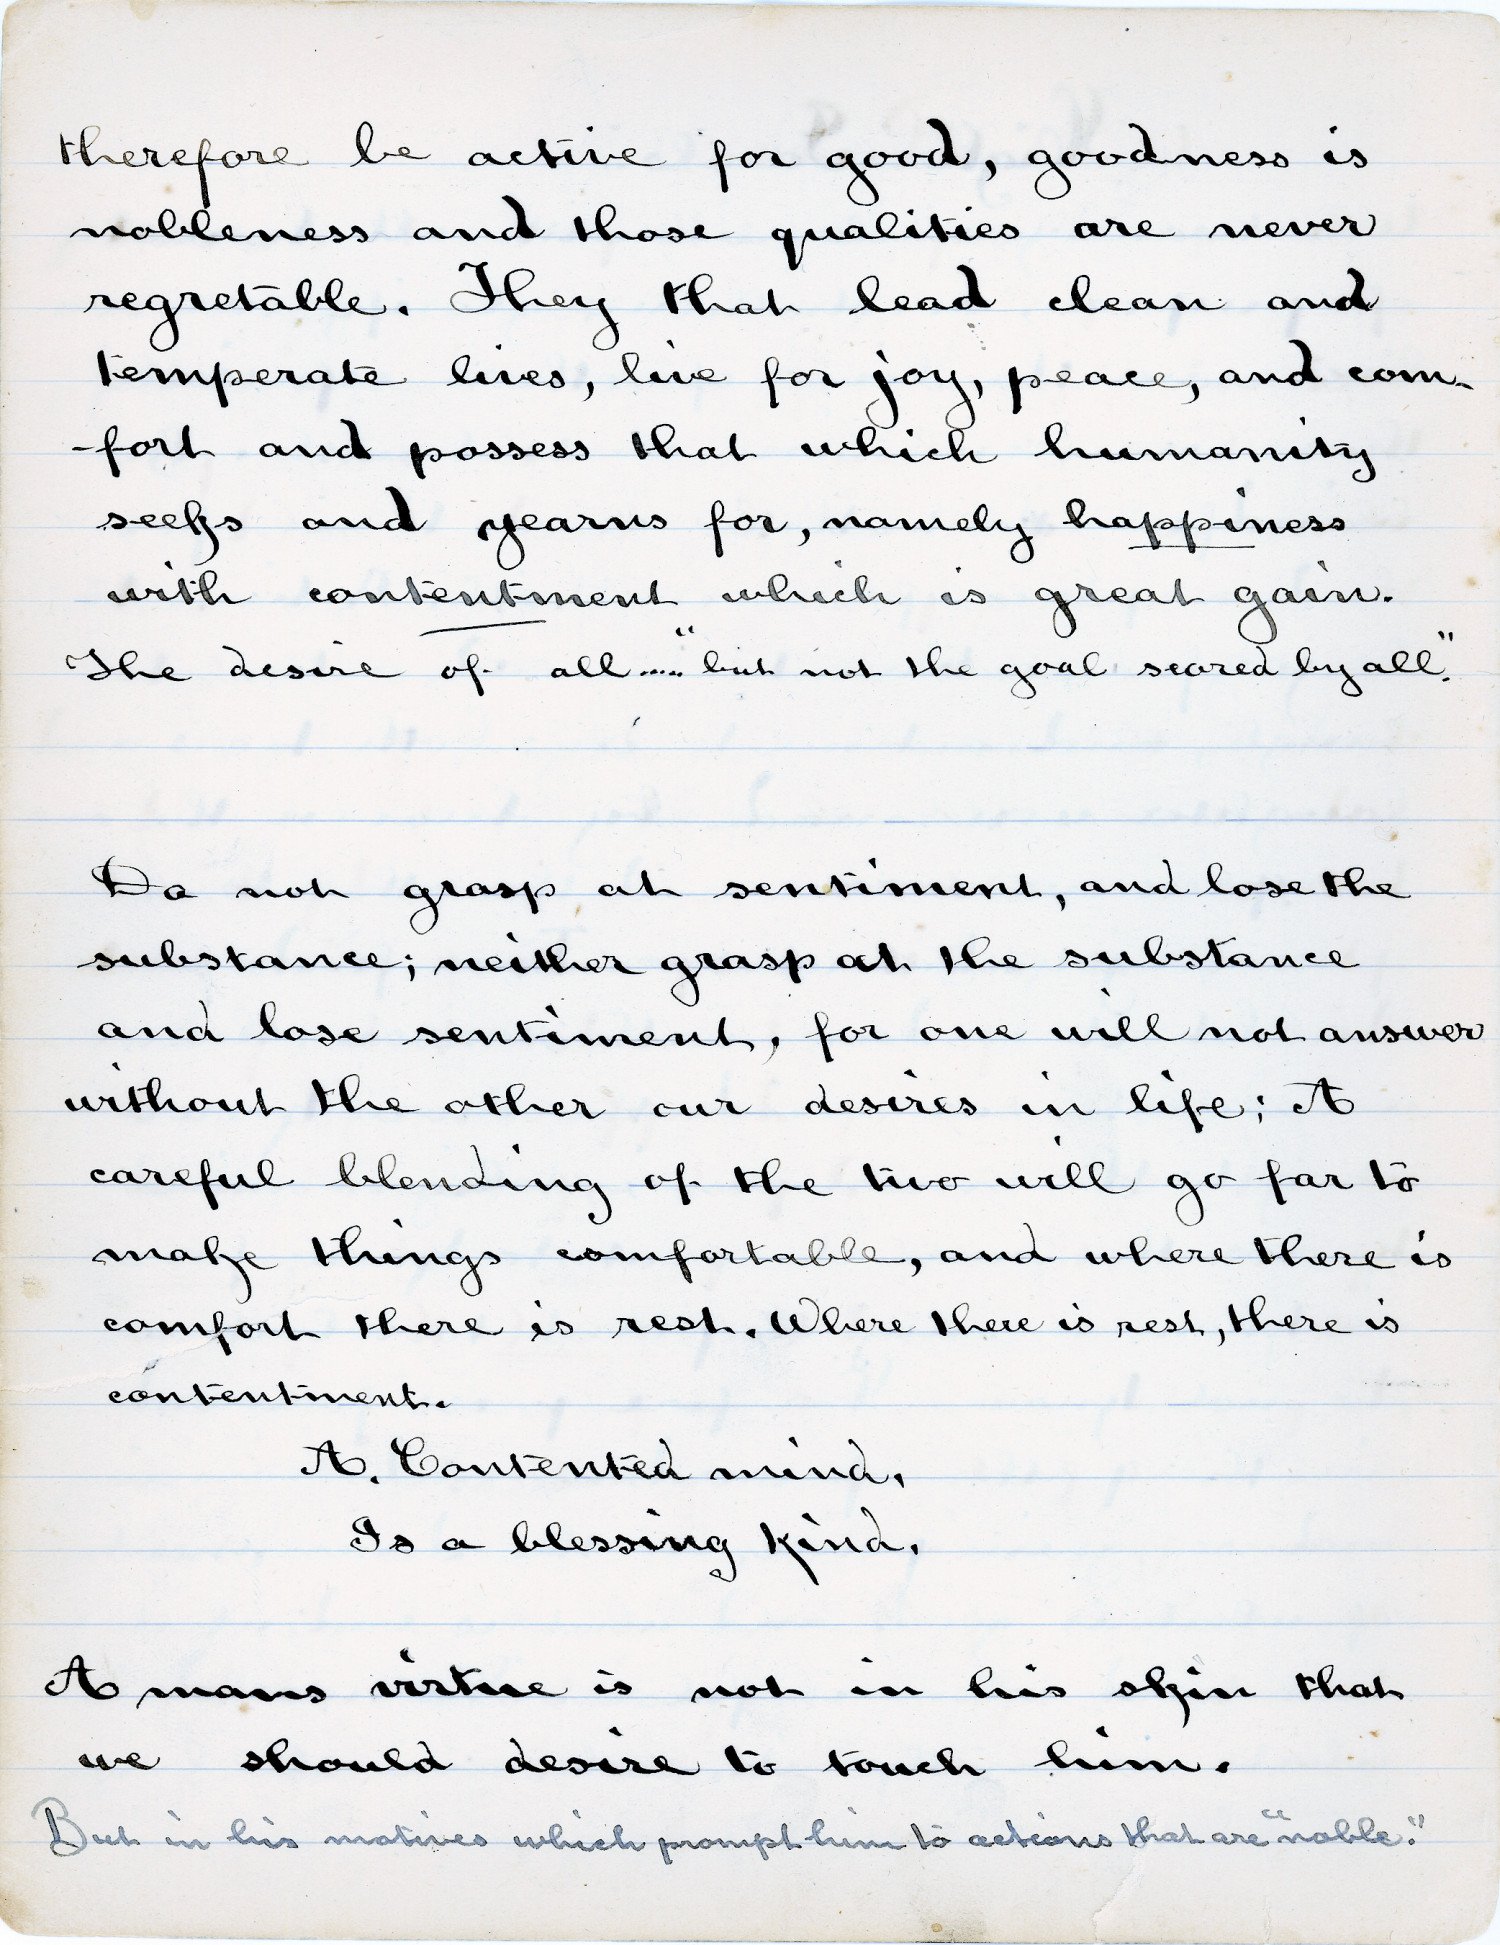 therefore be active for good, goodness is
nobleness and those qualities are never
regretable. They that lead clean and
temperate lives, live for joy, peace, and com-
-fort and possess that which humanity
seeks and yearns for, namely happiness
with contentment which is great gain.
The desire of all.... "but not the goal scored by all".
Do not grasp at sentiment, and lose the
substance; neither grasp at the substance
and lose sentiment, for one will not answer
without the other our desires in life; A
careful blending of the two will go far to
make things comfortable, and where there is
comfort there is rest. Where there is rest, there is
contentment.
A. Contented mind,
Is a blessing kind.
A mans virtue is not in his skin that
we should desire to touch him.
But in his motives which prompt him to actions that are "noble."